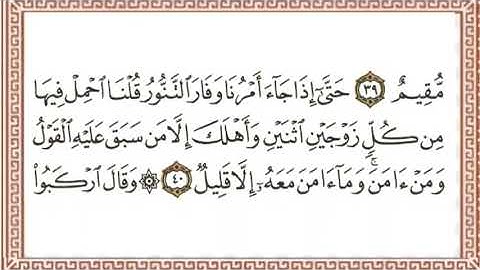 مُّقِيمٌ ٣٩ حَتَّىٰٓ إِذَا جَآءَ أَمْرُنَا وَفَارَ ٱلتَّنُّورُ قُلْنَا ٱحْمِلْ فِيهَا
مِن كُلٍّ زَوْجَيْنِ ٱثْنَيْنِ وَأَهْلَكَ إِلَّا مَن سَبَقَ عَلَيْهِ ٱلْقَوْلُ
وَمَنْ ءَامَنَ ۚ وَمَآ ءَامَنَ مَعَهُۥٓ إِلَّا قَلِيلٌ ٤٠ ۞ وَقَالَ ٱرْكَبُوا۟